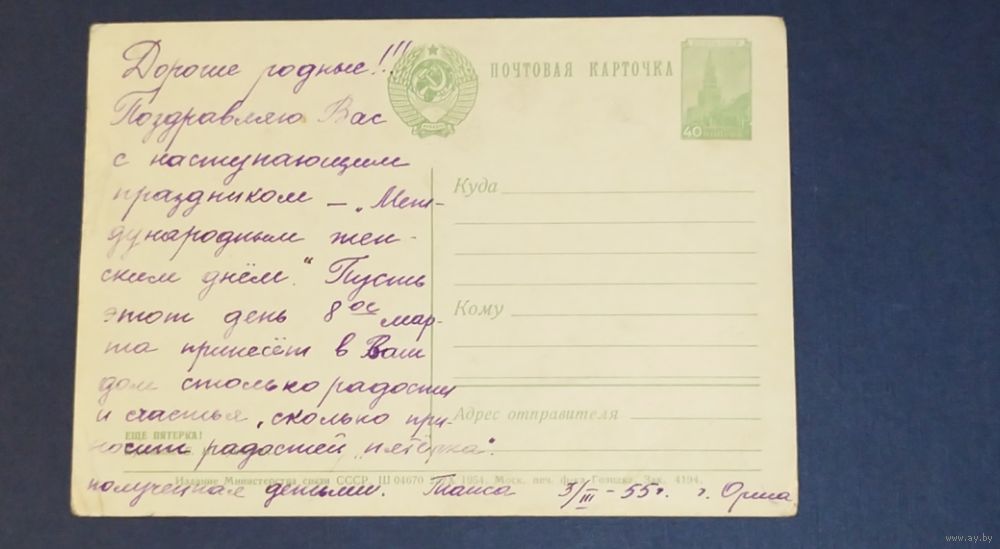 Дорогие родные!!!
Поздравляю Вас
с наступающим
праздником – „Меж-
дународным жен-
ским днём." Пусть
этот день 8ое мар-
та принесёт в Ваш
дом столько радости
и счастья, сколько при-
носит радостей „пятёрка".
полученная детьми. Таиса 3/III – 55 г. г. Орша
ПОЧТОВАЯ КАРТОЧКА
40
Куда
Кому
Адрес отправителя
ЕЩЕ ПЯТЕРКА!
Издание Министерства связи СССР. Ш 04670 1954. Моск. печ. ф-ка Гознака. Зак. 4194.
www.ay.by